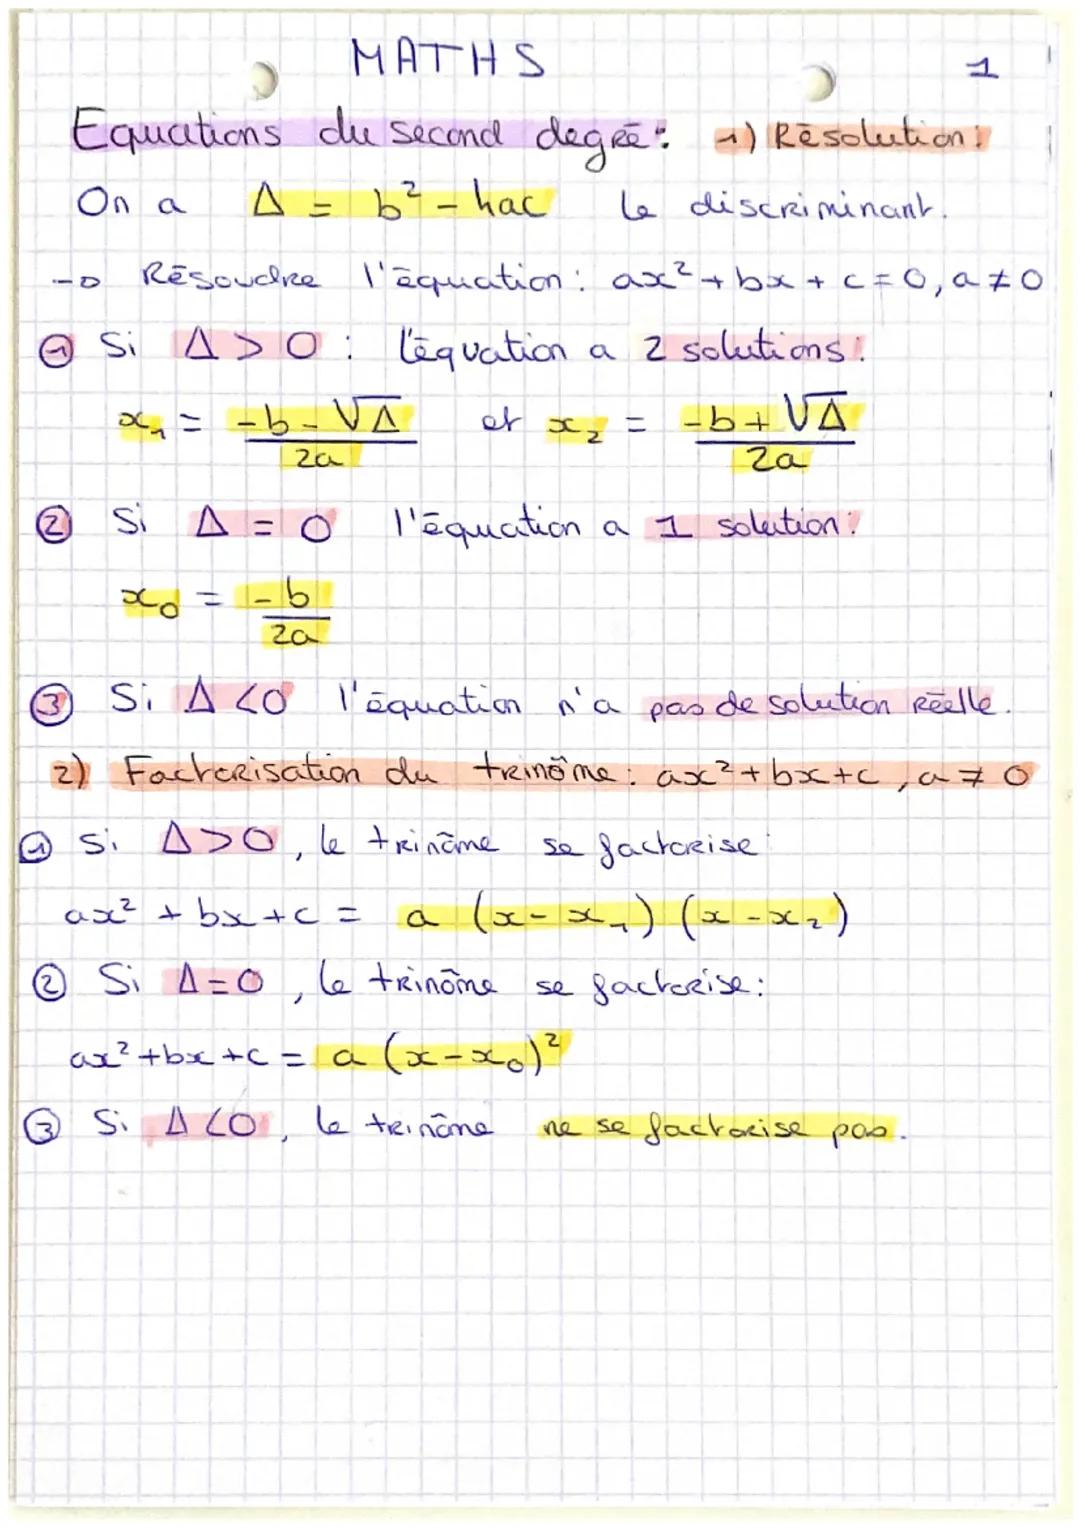 MATHS 1
Equations du second degré : 1) Résolution :
On a Δ = b² - 4ac le discriminant.
→ Résoudre l'équation : ax² + bx + c = 0, a ≠ 0
① Si Δ > 0 : l'équation a 2 solutions :
x₁ = (-b - √Δ) / 2a et x₂ = (-b + √Δ) / 2a
② Si Δ = 0 l'équation a 1 solution :
x₀ = -b / 2a
③ Si Δ < 0 l'équation n'a pas de solution réelle.
2) Factorisation du trinôme : ax² + bx + c, a ≠ 0
① Si Δ > 0, le trinôme se factorise :
ax² + bx + c = a (x - x₁) (x - x₂)
② Si Δ = 0, le trinôme se factorise :
ax² + bx + c = a (x - x₀)²
③ Si Δ < 0, le trinôme ne se factorise pas.